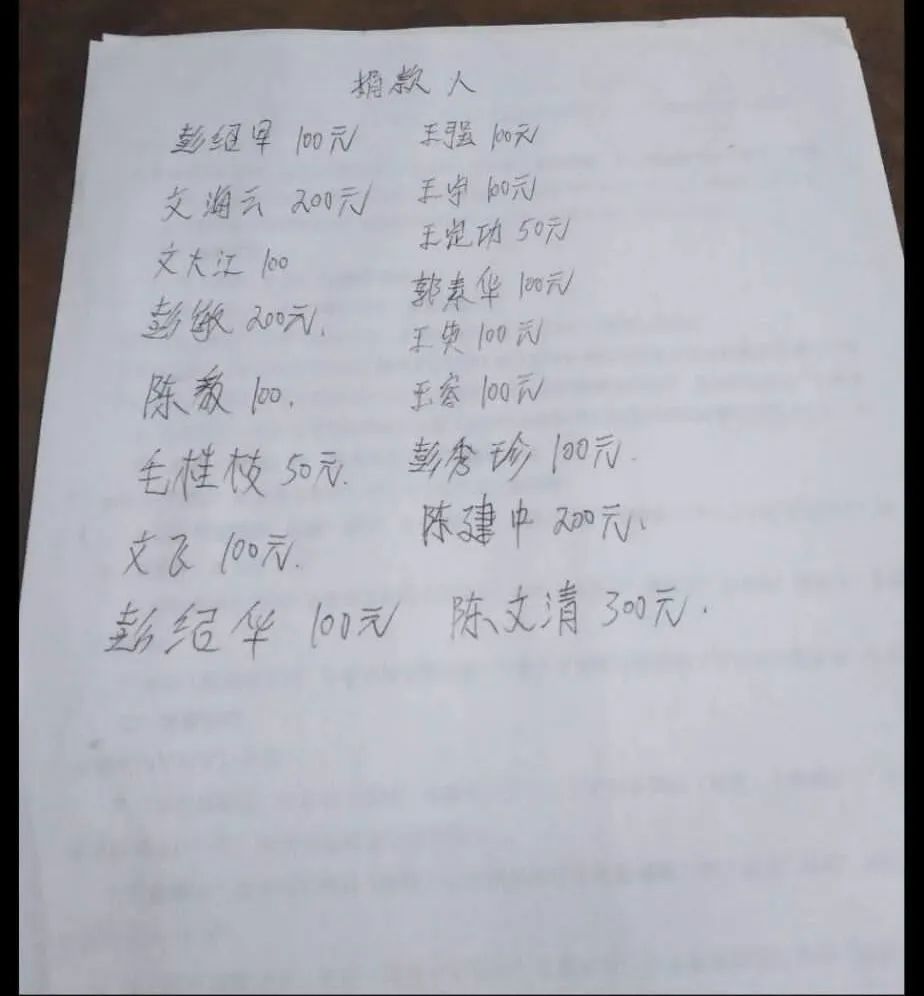 捐款人
彭继军 100元
文海云 200元
文大江 100
彭敏 200元.
陈敖 100.
毛桂枝 50元.
文飞 100元.
彭绍华 100元
王强 100元
王宇 100元
王定功 50元
郭泰华 100元
王英 100元
王容 100元
彭秀珍 100元.
陈建中 200元.
陈文清 300元.